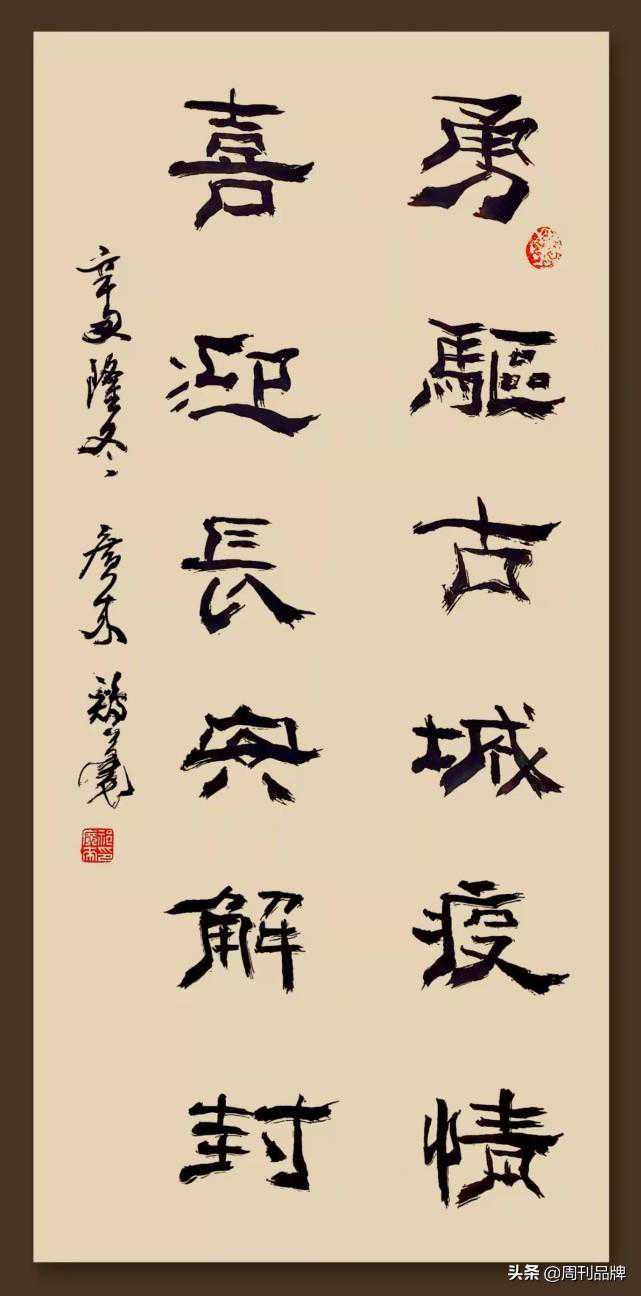 勇驅古城疫情
喜迎長安解封
辛丑隆冬 廣東
头条 @周刊品牌